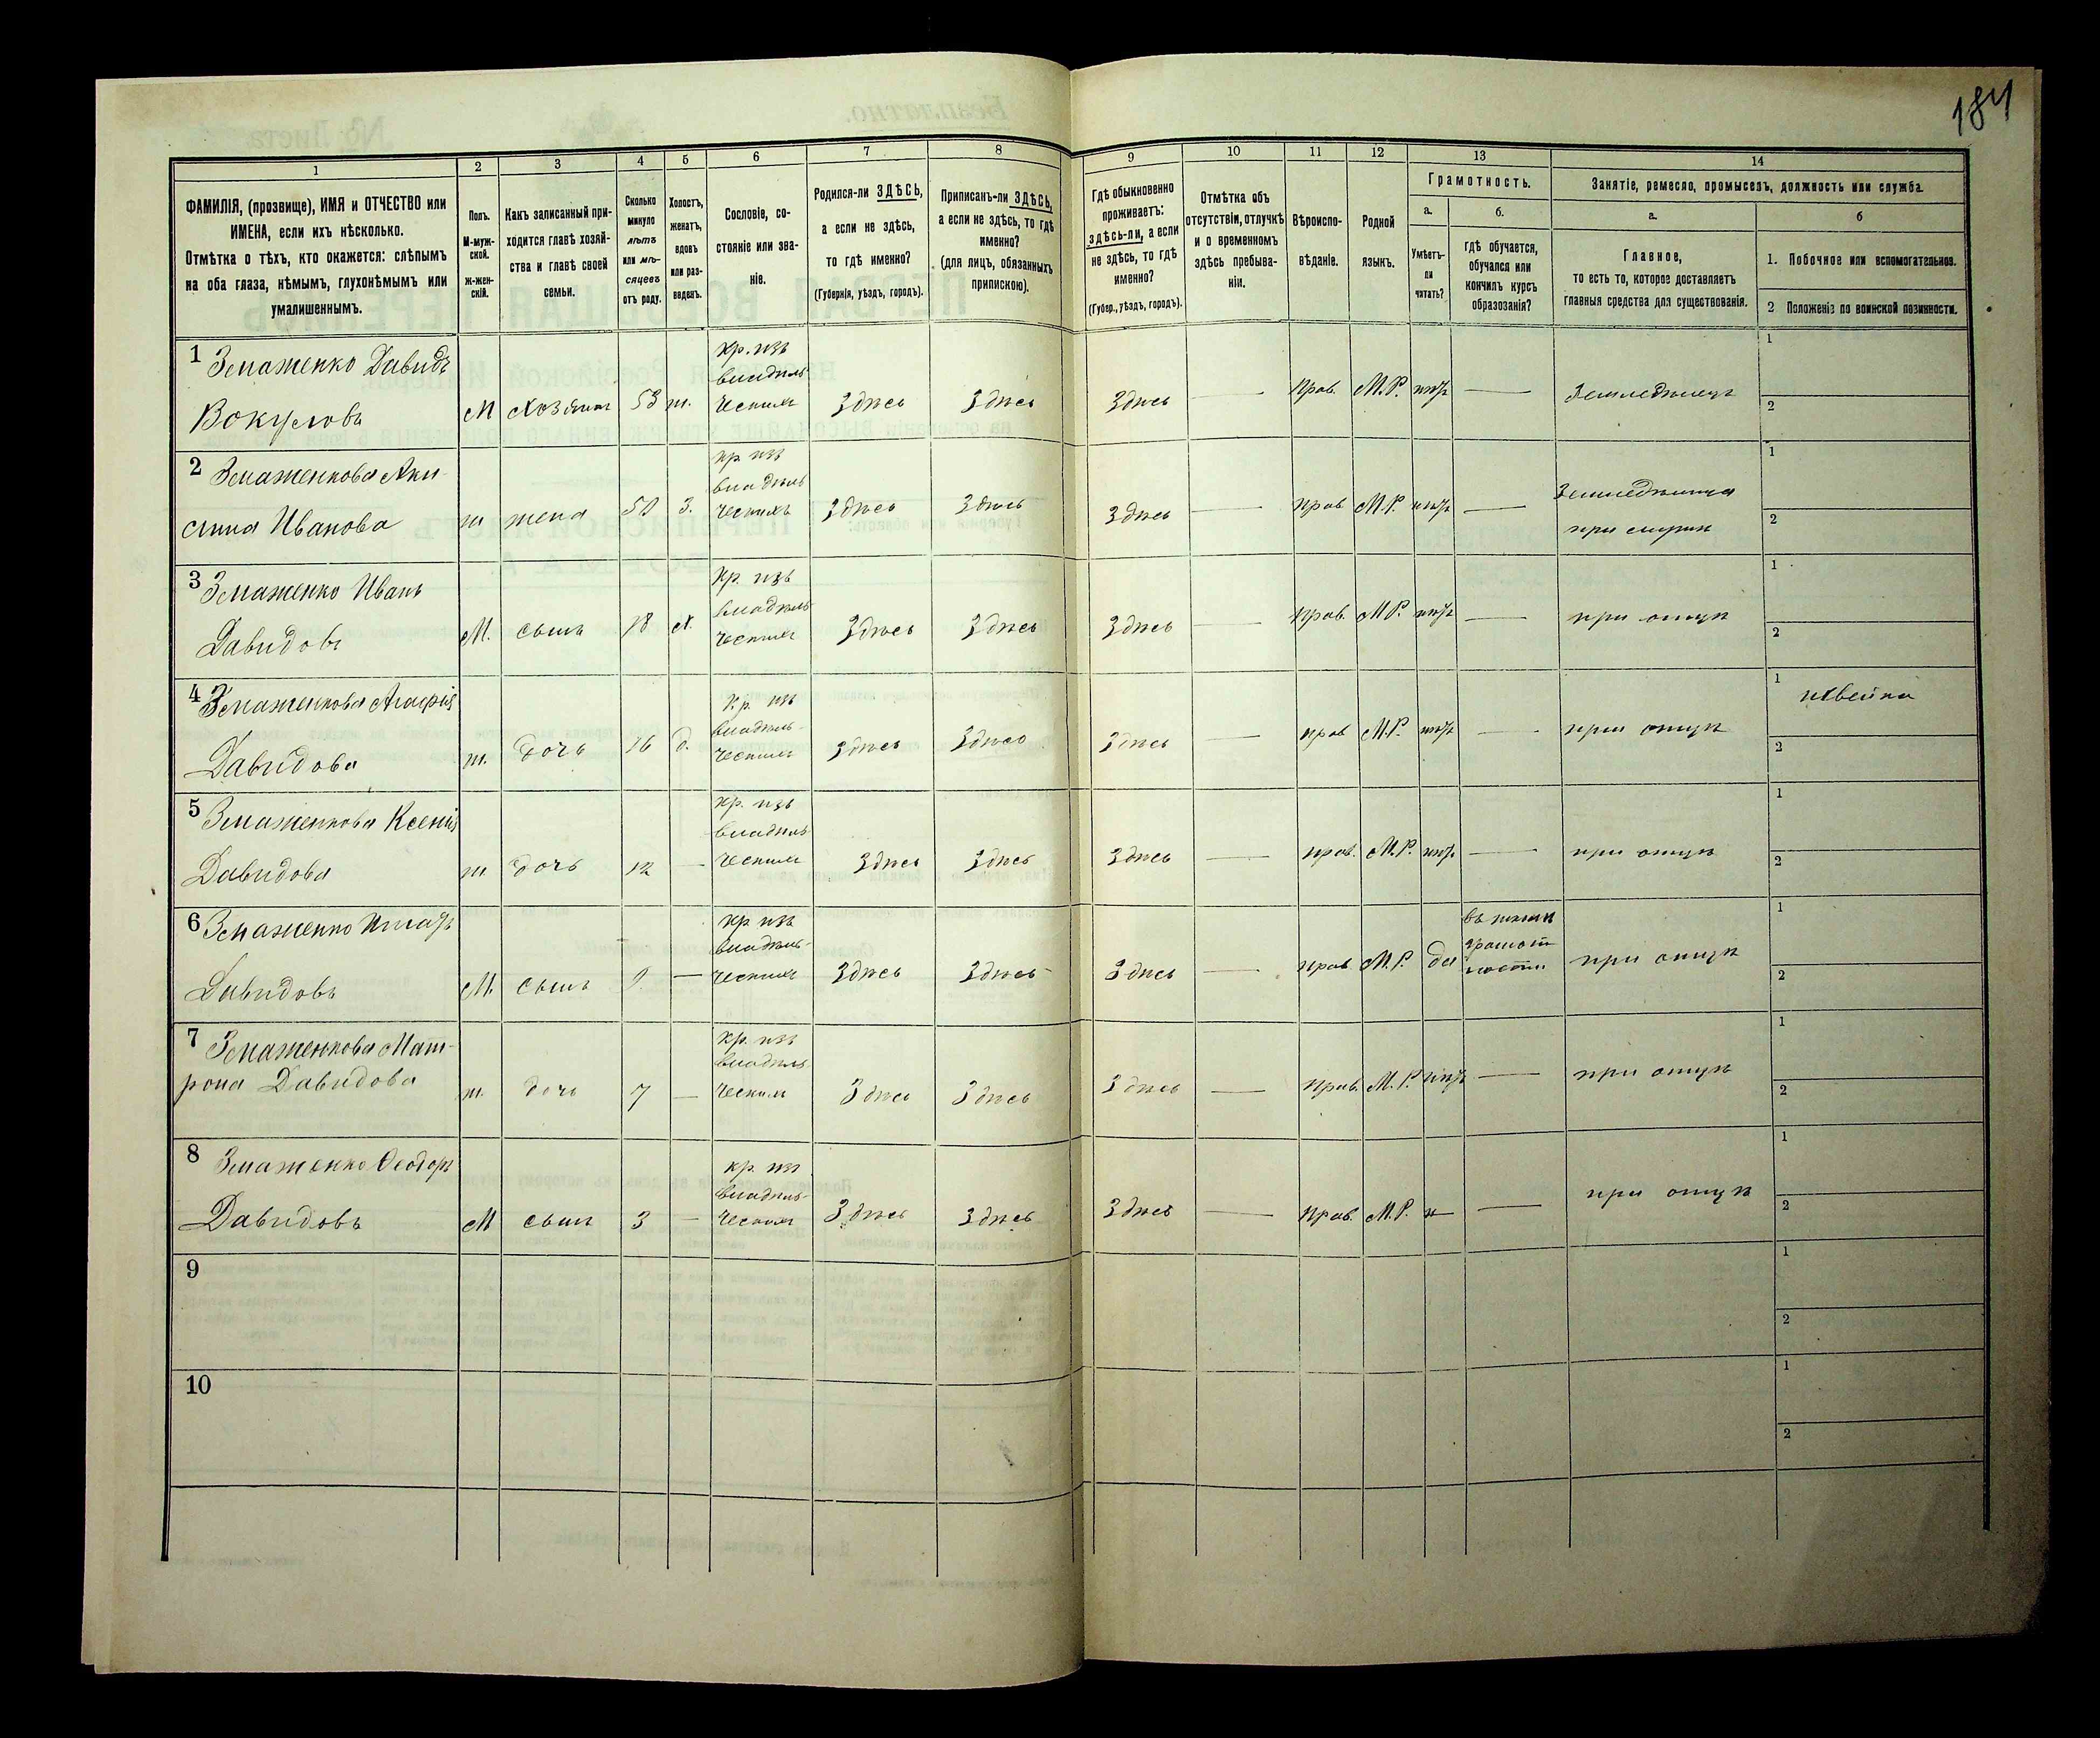 184
1 2 3 4 5 6 7 8 9 10 11 12 13 14
ФАМИЛІЯ, (прозвище), ИМЯ и ОТЧЕСТВО или
ИМЕНА, если ихъ нѣсколько.
Отмѣтка о тѣхъ, кто окажется: слѣпымъ
на оба глаза, нѣмымъ, глухонѣмымъ или
умалишеннымъ.
Полъ.
М-муж-
ской.
ж-жен-
скій.
Какъ записанный при-
ходится главѣ хозяй-
ства и главѣ своей
семьи.
Сколько
минуло
лѣтъ
или мѣ-
сяцевъ
отъ роду.
Холостъ,
женатъ,
вдовъ
или раз-
веденъ.
Сословіе, со-
стояніе или зва-
ніе.
Родился-ли ЗДѢСЬ,
а если не здѣсь,
то гдѣ именно?
(Губернія, уѣздъ, городъ).
Приписанъ-ли ЗДѢСЬ,
а если не здѣсь, то гдѣ
именно?
(для лицъ, обязанныхъ
припискою).
Гдѣ обыкновенно
проживаетъ:
здѣсь-ли, а если
не здѣсь, то гдѣ
именно?
(Губер., уѣздъ, городъ).
Отмѣтка объ
отсутствіи, отлучкѣ
и о временномъ
здѣсь пребыва-
ніи.
Вѣроиспо-
вѣданіе.
Родной
языкъ.
Грамотность.
а.
Умѣетъ-
ли
читать?
б.
гдѣ обучается,
обучался или
кончилъ курсъ
образованія?
Занятіе, ремесло, промыселъ, должность или служба.
а.
Главное,
то есть то, которое доставляетъ
главныя средства для существованія.
б
1. Побочное или вспомогательное.
2 Положеніе по воинской повинности.
1 Змаженко Давидъ
кр. изъ
владѣль
М Хозяинъ 53 ж. ческихъ Здѣсь Здѣсь Здѣсь — Прав. М.Р. нѣтъ — Земледѣлецъ
1
2
2 Змаженкова Аки-
лина Иванова
кр. изъ
владѣль
ж жена 50 З. ческихъ Здѣсь Здѣсь Здѣсь — Прав М.Р. нѣтъ —
1
2
3 Змаженко Иванъ
Давидовъ
Кр. изъ
владѣль-
М. сынъ 18 Х. ческихъ Здѣсь Здѣсь Здѣсь — Прав. М.Р. нѣтъ — при отцѣ
1
2
4 Змаженкова Агафія
Давидова
Кр. изъ
владѣль-
ж. дочь 16 д. ческихъ Здѣсь Здѣсь Здѣсь — прав М.Р. нѣтъ — при отцѣ
1 швейка
2
5 Змаженкова Ксенія
Давидова
кр. изъ
владѣль-
ж дочь 12 — ческихъ Здѣсь Здѣсь Здѣсь — прав. М.Р. нѣтъ — при отцѣ
1
2
6 Змаженко
Давидовъ
кр изъ
владѣль-
М. сынъ 9 — ческихъ Здѣсь Здѣсь Здѣсь — прав М.Р. да
въ школѣ
грамот
ности
при отцѣ
1
2
7 Змаженкова Мат-
рона Давидова
кр. изъ
владѣль
ж. дочь 7 — ческихъ Здѣсь Здѣсь Здѣсь — прав. М.Р. нѣтъ — при отцѣ
1
2
8 Змаженко Ѳеодоръ
Давидовъ
кр. изъ
владѣль-
М сынъ 3 — ческихъ Здѣсь Здѣсь Здѣсь — прав. М.Р. — при отцѣ
1
2
9
1
2
10
1
2